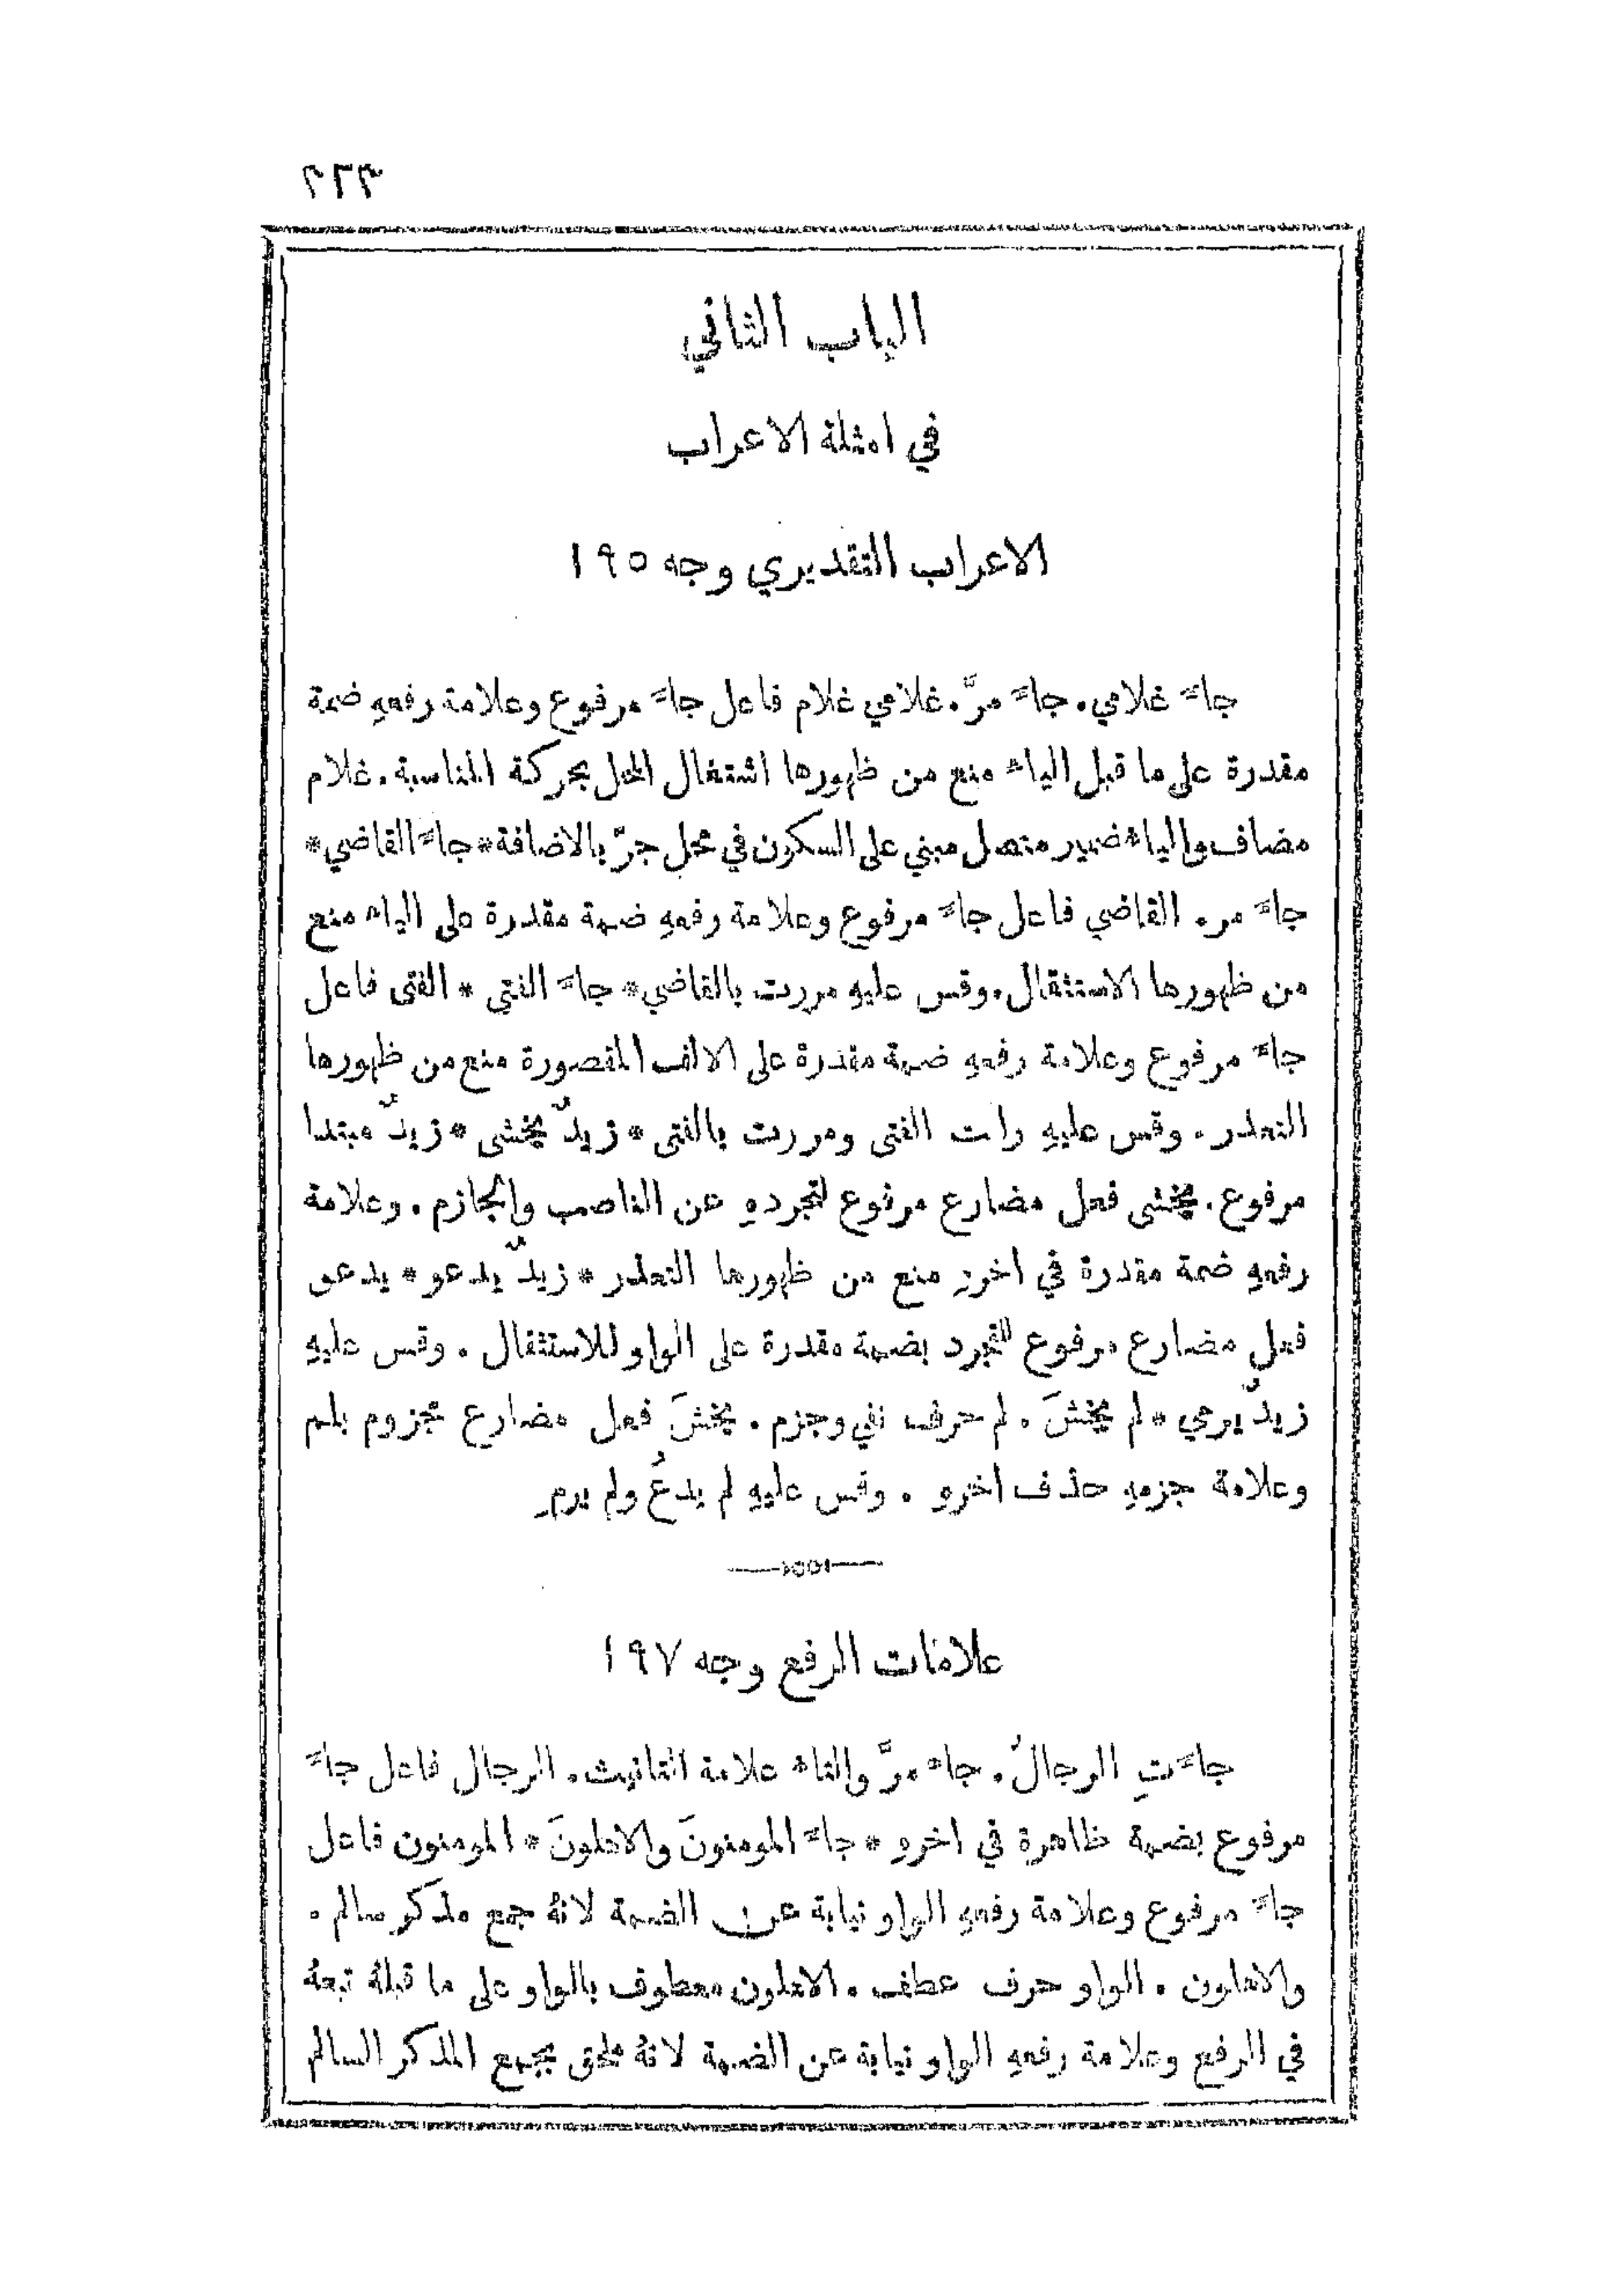 ٢٦٣
الباب الثاني
في امثلة الاعراب
الاعراب التقديري وجه ١٩٥
جاءَ غلامي. جاءَ مرَّ. غلامي غلام فاعل جاءَ مرفوع وعلامة رفعهِ ضمة
مقدرة على ما قبل الياء منع من ظهورها اشتغال المحل بحركة المناسبة. غلام
مضاف والياء ضمير متصل مبني على السكون في محل جرّ بالاضافة * جاءَ القاضي *
جاءَ مر. القاضي فاعل جاءَ مرفوع وعلامة رفعهِ ضمة مقدرة على الياء منع
من ظهورها الاستثقال. وقس عليهِ مررت بالقاضي * جاءَ الفتي * الفتى فاعل
جاءَ مرفوع وعلامة رفعهِ ضمة مقدرة على الالف المقصورة منع من ظهورها
التعذر. وقس عليهِ رات الفتى ومررت بالفتى * زيدٌ يخشى * زيدٌ مبتدا
مرفوع. يخشى فعل مضارع مرفوع لتجردهِ عن الناصب والجازم. وعلامة
رفعهِ ضمة مقدرة في اخرهِ منع من ظهورها التعذر * زيدٌ يدعو * يدعو
فعل مضارع مرفوع للتجرد بضمة مقدرة على الواو للاستثقال. وقس عليهِ
زيدٌ يرمي * لم يخشَ. لم حرف نفي وجزم. يخشَ فعل مضارع مجزوم بلم
وعلامة جزمهِ حذف اخرهِ. وقس عليهِ لم يدعُ ولم يرمِ
علامات الرفع وجه ١٩٧
جاءَتِ الرجالُ. جاء مرَّ والتاء علامة التانيث. الرجال فاعل جاءَ
مرفوع بضمة ظاهرة في اخرهِ * جاءَ المومنونَ والاهلونَ * المومنون فاعل
جاءَ مرفوع وعلامة رفعهِ الواو نيابة عن الضمة لانهُ جمع مذكر سالم.
والاهلون. الواو حرف عطف. الاهلون معطوف بالواو على ما قبلهُ تبعهُ
في الرفع وعلامة رفعهِ الواو نيابة عن الضمة لانهُ ملحق بجمع المذكر السالم